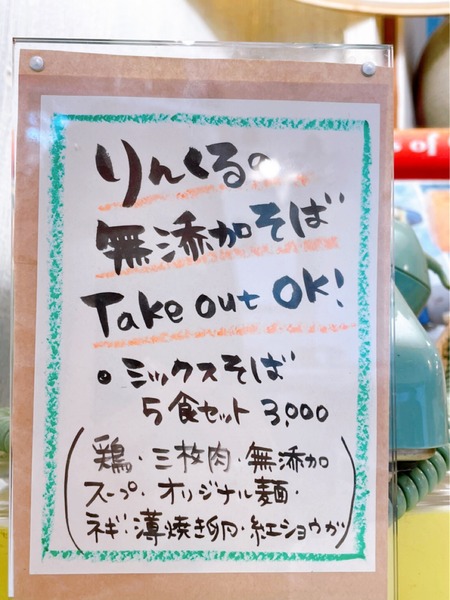 りんくるの
無添加そば
Take out OK!
• ミックスそば
5食セット 3,000
(鶏・三枚肉・無添加
スープ・オリジナル麺・
ネギ・薄焼き卵・紅ショウガ)
s of